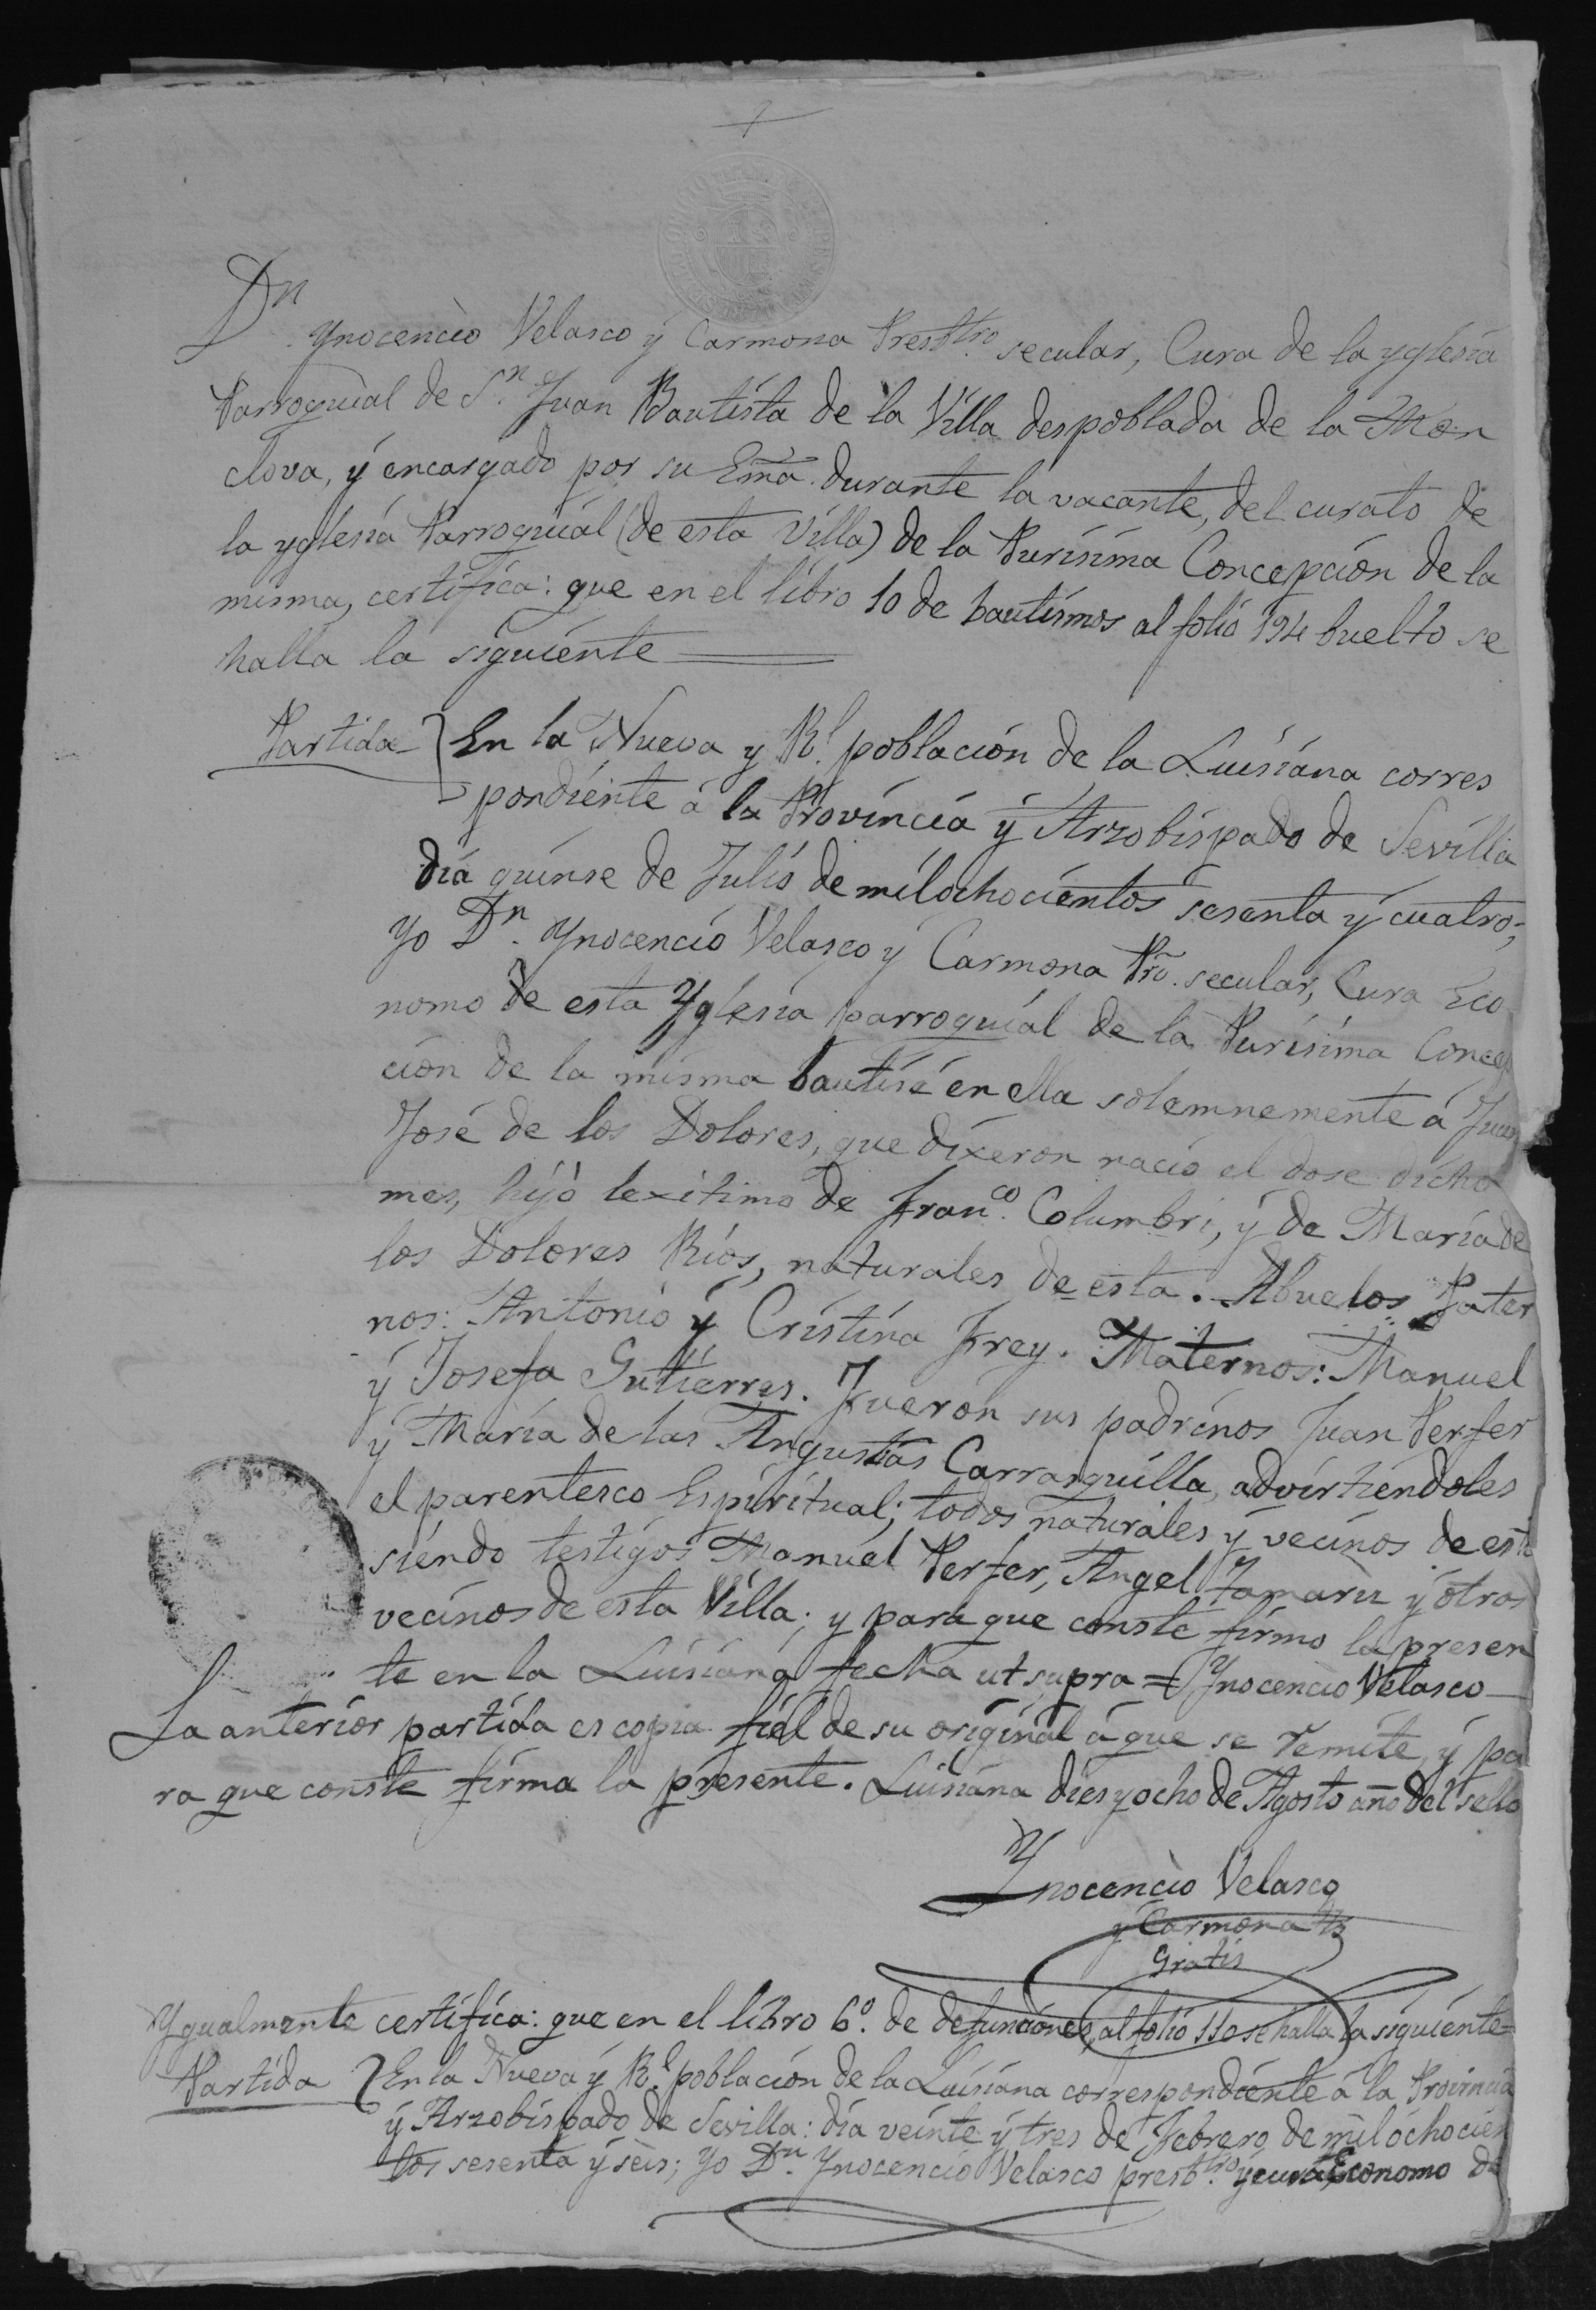 Dn. Ynocencio Velasco y Carmona Presbtro. secular, Cura de la yglesia
Parroquial de Sn. Juan Bautista de la Villa despoblada de la Mon
clova, y encargado por su Ema. durante la vacante, del curato de
la yglesia Parroquial (de esta Villa) de la Purisima Concepcion de la
misma, certifica: que en el libro 10 de bautismos al folio 194 buelto se
halla la siguiente
Partida } En la Nueva y Rl. población de la Luisiana corres
pondiente á la Provincia y Arzobispado de Sevilla
dia quinse de Julio de milochocientos sesenta y cuatro;
yo Dn. Ynocencio Velasco y Carmona Pro. secular, Cura Eco
nomo de esta Yglesia parroquial de la Purisima Concep
cion de la misma bautisé en ella solemnemente á Juan
José de los Dolores, que dixeron nació el dose dicho
mes, hijo lexitimo de Franco. Columbri, y de Maria de
los Dolores Rios, naturales de esta. Abuelos Pater
nos: Antonio y Cristina Frey. Maternos: Manuel
y Josefa Gutierres. Fueron sus padrinos Juan Perfer
y Maria de las Angustias Carrasquilla, advirtiendoles
el parentesco Espiritual; todos naturales y vecinos de esta
siendo testigos Manuel Perfer, Angel Tamariz y otros
vecinos de esta Villa; y para que conste firmo la presen
te en la Luisiana fecha ut supra = Ynocencio Velasco
La anterior partida es copia fiel de su original á que se remite, y pa
ra que conste firma la presente. Luisiana dies y ocho de Agosto año del sello
Ynocencio Velasco
y Carmona
Gratis
Ygualmente certifica: que en el libro 6º. de defunciones, al folio 110 se halla la siguiente=
Partida } En la Nueva y Rl. población de la Luisiana correspondiente á la Provincia
y Arzobispado de Sevilla: dia veinte y tres de Febrero de milochocien
tos sesenta y seis; yo Dn. Ynocencio Velasco presbtro. y cura Economo de